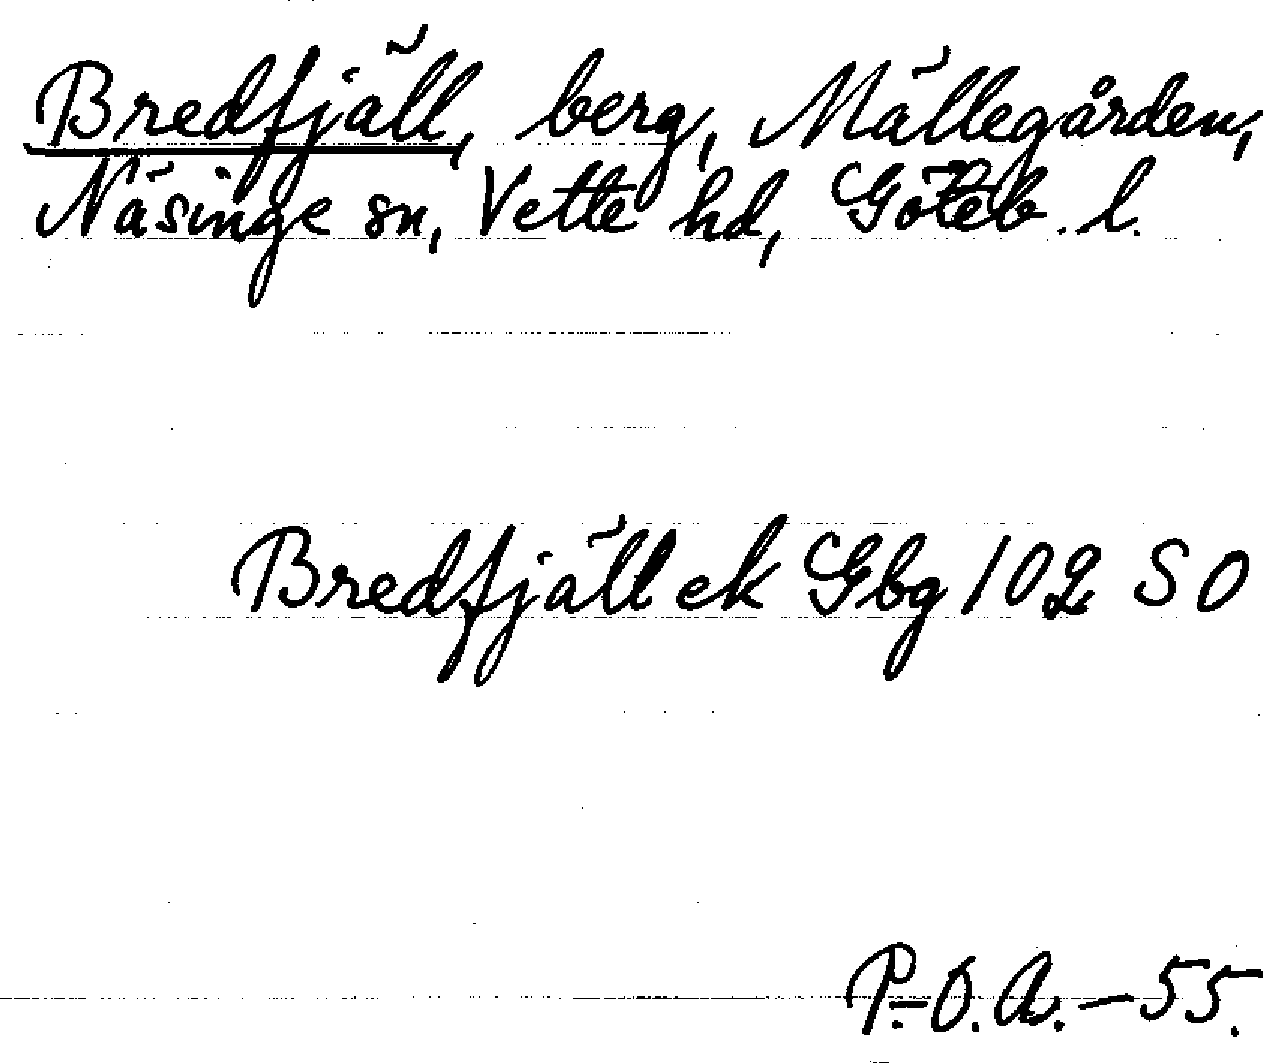 Bredfjäll, berg, Mällegården,
Näsinge sn, Vette hd, Göteb. l.
Bredfjäll ek Gbg 102 SO
P.-O.A. - 55.